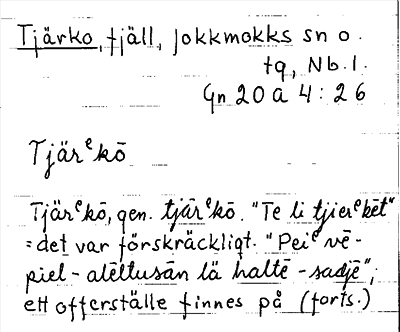 Tjärko, fjäll, Jokkmokks sn o.
tg, Nb.l.
Gn 20 a 4:26
Tjärᵉkō
Tjärᵉkō, gen. tjārᵉkō. "Te li tjierᵉkēt"
= det var förskräckligt. "Peiᵉ vē-
piel-atēltusān lä haltē-sadjē";
ett offerställe finnes på (forts.)